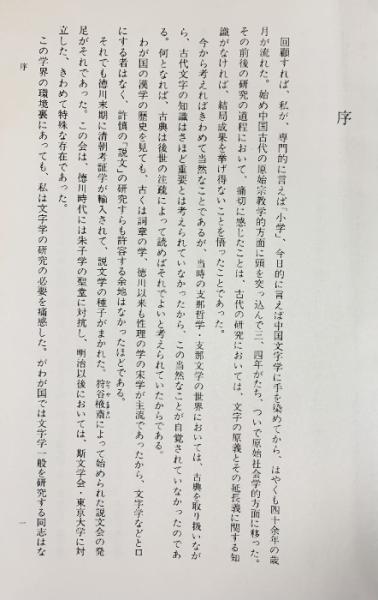 序
回顧すれば、私が、専門的に言えば「小学」、今日的に言えば中国文字学に手を染めてから、はやくも四十余年の歳
月が流れた。始め中国古代の原始宗教学的方面に頭を突っ込んで三、四年がたち、ついで原始社会学的方面に移った。
その前後の研究の道程において、痛切に感じたことは、古代の研究においては、文字の原義とその延長義に関する知
識がなければ、結局成果を挙げ得ないことを悟ったことであった。
今から考えればきわめて当然なことであるが、当時の支那哲学・支那文学の世界においては、古典を取り扱いなが
ら、古代文字の知識はさほど重要とは考えられていなかったから、この当然なことが自覚されていなかったのであ
る。何となれば、古典は後世の注疏によって読めばそれでよいと考えられていたからである。
わが国の漢学の歴史を見ても、古くは詞章の学、徳川以来も性理の学の宋学が主流であったから、文字学などと口
にする者はなく、許慎の「説文」の研究すらも許容する余地はなかったほどである。
それでも徳川末期に清朝考証学が輸入されて、説文学の種子がまかれた。狩谷棭斎によって始められた説文会の発
足がそれであった。この会は、徳川時代には朱子学の聖堂に対抗し、明治以後においては、斯文学会・東京大学に対
立した、きわめて特殊な存在であった。
この学界の環境裏にあっても、私は文字学の研究の必要を痛感した。がわが国では文字学一般を研究する同志はな
序
一